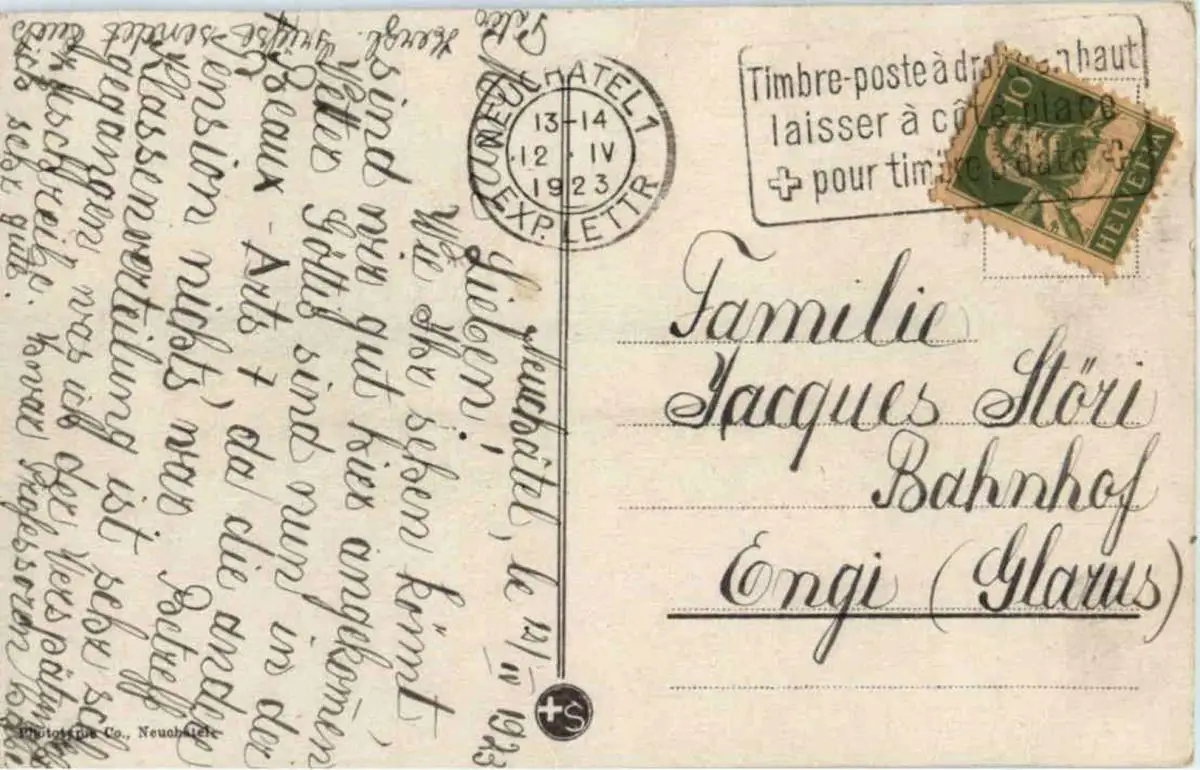 Neuchâtel, le 12/IV 1923
Lieben!
Wie Ihr sehen könnt,
sind wir gut hier angekommen
Wetter Göttis sind nun in der
Beaux-Arts 7
Pension nichts, da die andre
war Betreff
Klassenverteilung ist sehr schl
gegangen was ich der Verspätung
zuschreibe. Professoren
ich sehr gut.
Herzl. Grüsse sendet Euch
NEUCHATEL 1
13-14
12 IV
1923
EXP. LETTR
Timbre-poste à droite en haut
laisser à côté place
pour timbre à date
10
HELVETIA
Familie
Jacques Störi
Bahnhof
Engi (Glarus)
S
Phototypie Co., Neuchâtel